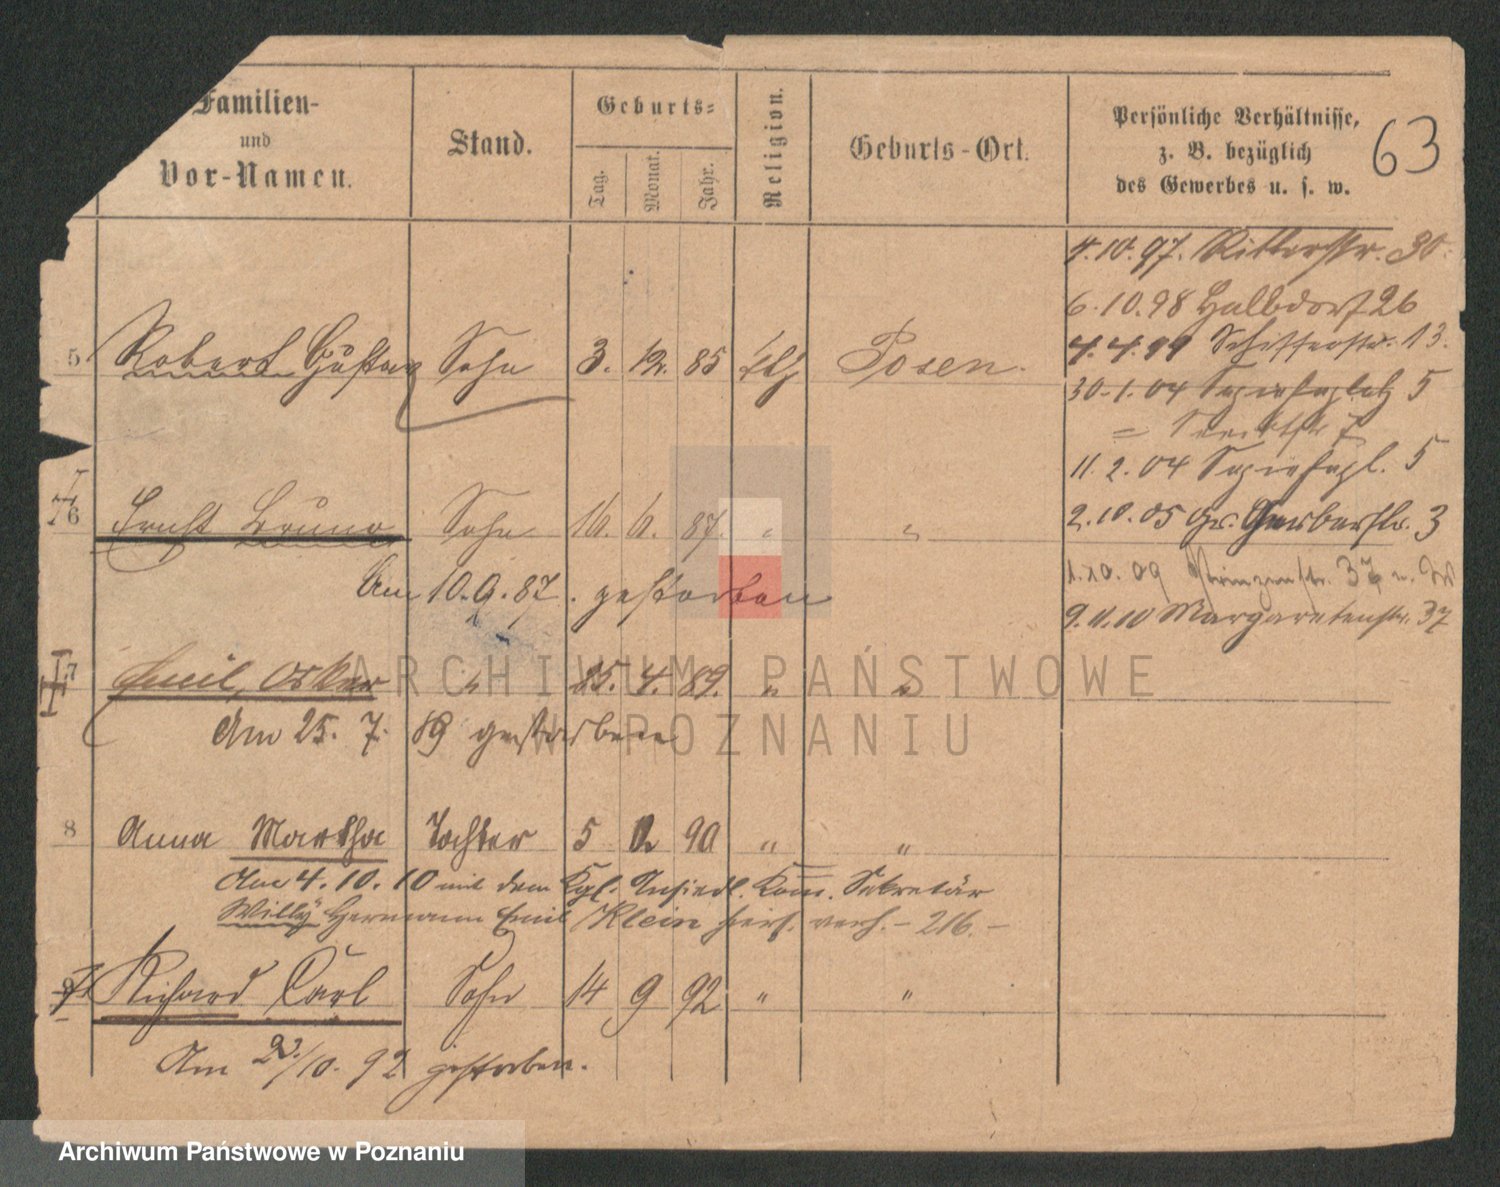 Familien-
und
Vor-Namen.
Stand.
Geburts-
Tag.
Monat.
Jahr.
Religion.
Geburts-Ort.
Persönliche Verhältnisse,
z. B. bezüglich
des Gewerbes u. s. w.
63
4.10.97. Ritterstr. 30.
6.10.98 Halbdorf 26
4.4.99 Schifferstr. 13.
5 Robert Gustav Sohn 3. 12. 85 Posen.
30.1.04 Sapiehaplatz 5
11.2.04 Sapiehapl. 5
6 Ernst Bruno Sohn 16. 6. 87. " "
2.10.05 Gr. Gerberstr. 3
1.10.09 Prinzenstr. 37
Am 10.9.87. gestorben
9.11.10 Margaretenstr. 37
7 Emil, Oskar " 25. 4. 89. " "
Am 25. 7. 89 gestorben
8 Anna Martha Tochter 5 90 " "
Am 4.10.10 mit dem Kgl. Ansiedl. Kom. Sekretär
Willy Hermann Emil Klein hier verh. – 216. –
9 Richard Carl Sohn 14 9 92 " "
Am 23/10. 92 gestorben.
ARCHIWUM PAŃSTWOWE
W POZNANIU
Archiwum Państwowe w Poznaniu